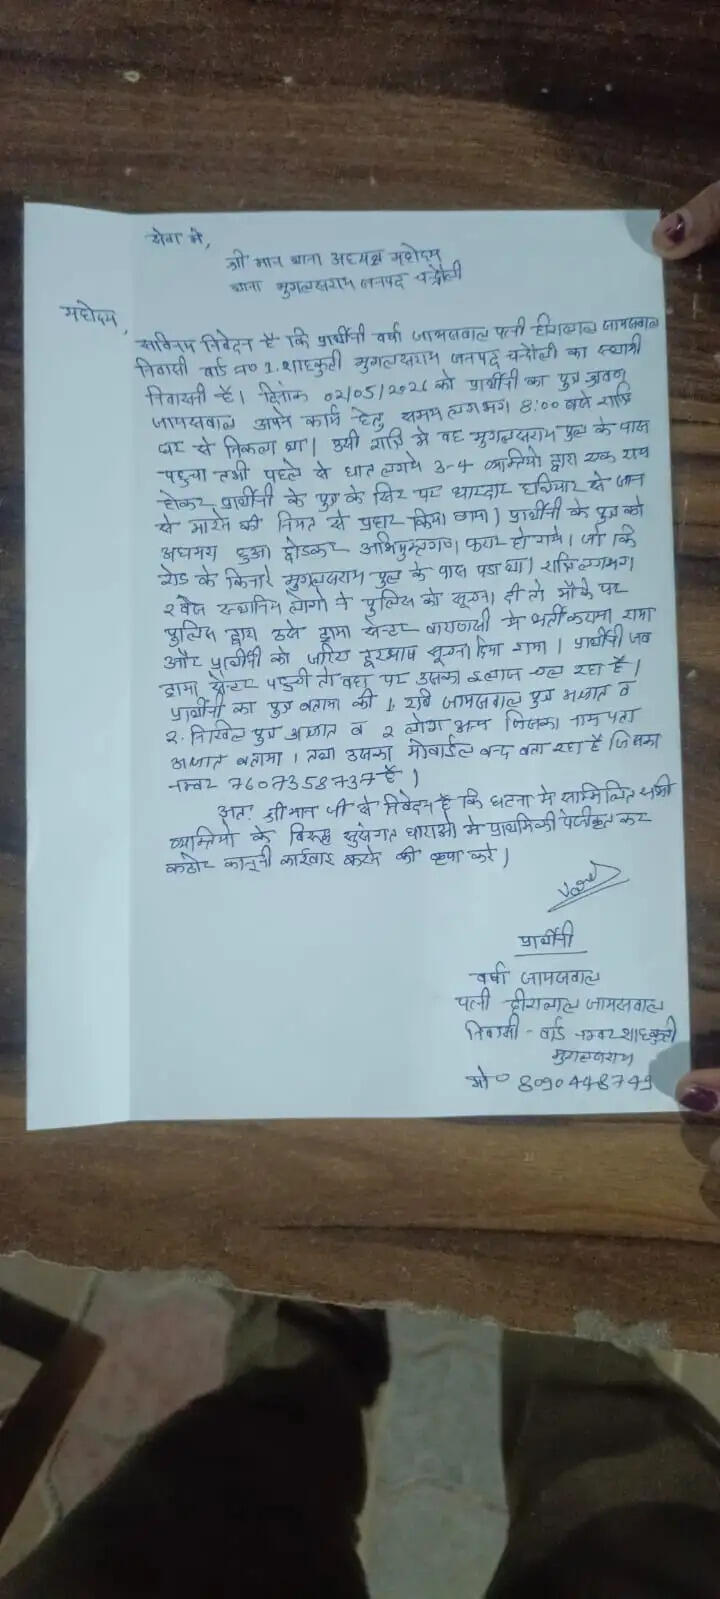 सेवा में,
श्री मान थाना अध्यक्ष महोदय
थाना मुगलसराय जनपद चन्दौली
महोदय,
सविनय निवेदन है कि प्रार्थीनी वर्षा जायसवाल पत्नी हीरालाल जायसवाल
निवासी वार्ड न० 1. शाहकुटी मुगलसराय जनपद चन्दौली का स्थायी
निवासनी है। दिनांक 02/05/2026 को प्रार्थीनी का पुत्र
जायसवाल अपने कार्य हेतु समय लगभग 8:00 बजे रात्रि
घर से निकला था। उसी रात्रि मे वह मुगलसराय पुल के पास
पहुचा तभी पहले से घात लगाये 3-4 व्यक्तियो द्वारा एक राय
होकर प्रार्थीनी के पुत्र के सिर पर धारदार हथियार से जान
से मारने की नियत से प्रहार किया गया। प्रार्थीनी के पुत्र को
अधमरा हुआ छोडकर अभियुक्तगण फरार हो गये। जो कि
रोड के किनारे मुगलसराय पुल के पास पडा था। रात्रि लगभग
२ बजे स्थानिय लोगो ने पुलिस को सूचना दी तो मौके पर
पुलिस द्वारा उसे ट्रामा सेन्टर वाराणसी मे भर्ती कराया गया
और प्रार्थीनी को जरिए दूरभाष सूचना दिया गया। प्रार्थीनी जब
ट्रामा सेन्टर पहुची तो वहा पर उसका इलाज चल रहा है।
प्रार्थीनी का पुत्र बताया की 1. रवि जायसवाल पुत्र अज्ञात व
२. निखिल पुत्र अज्ञात व २ लोग अन्य जिसका नाम पता
अज्ञात बताया। तथा उसका मोबाईल बन्द बता रहा है जिसका
नम्बर 7607358737 है।
अतः श्रीमान जी से निवेदन है कि घटना मे सम्मिलित सभी
व्यक्तियो के विरूद्ध सुसंगत धाराओ मे प्राथमिकी पंजीकृत कर
कठोर कानूनी कार्रवाई करने की कृपा करे।
प्रार्थीनी
वर्षा जायसवाल
पत्नी हीरालाल जायसवाल
निवासी - वार्ड नम्बर शाहकुटी
मुगलसराय
मो० 8090448749